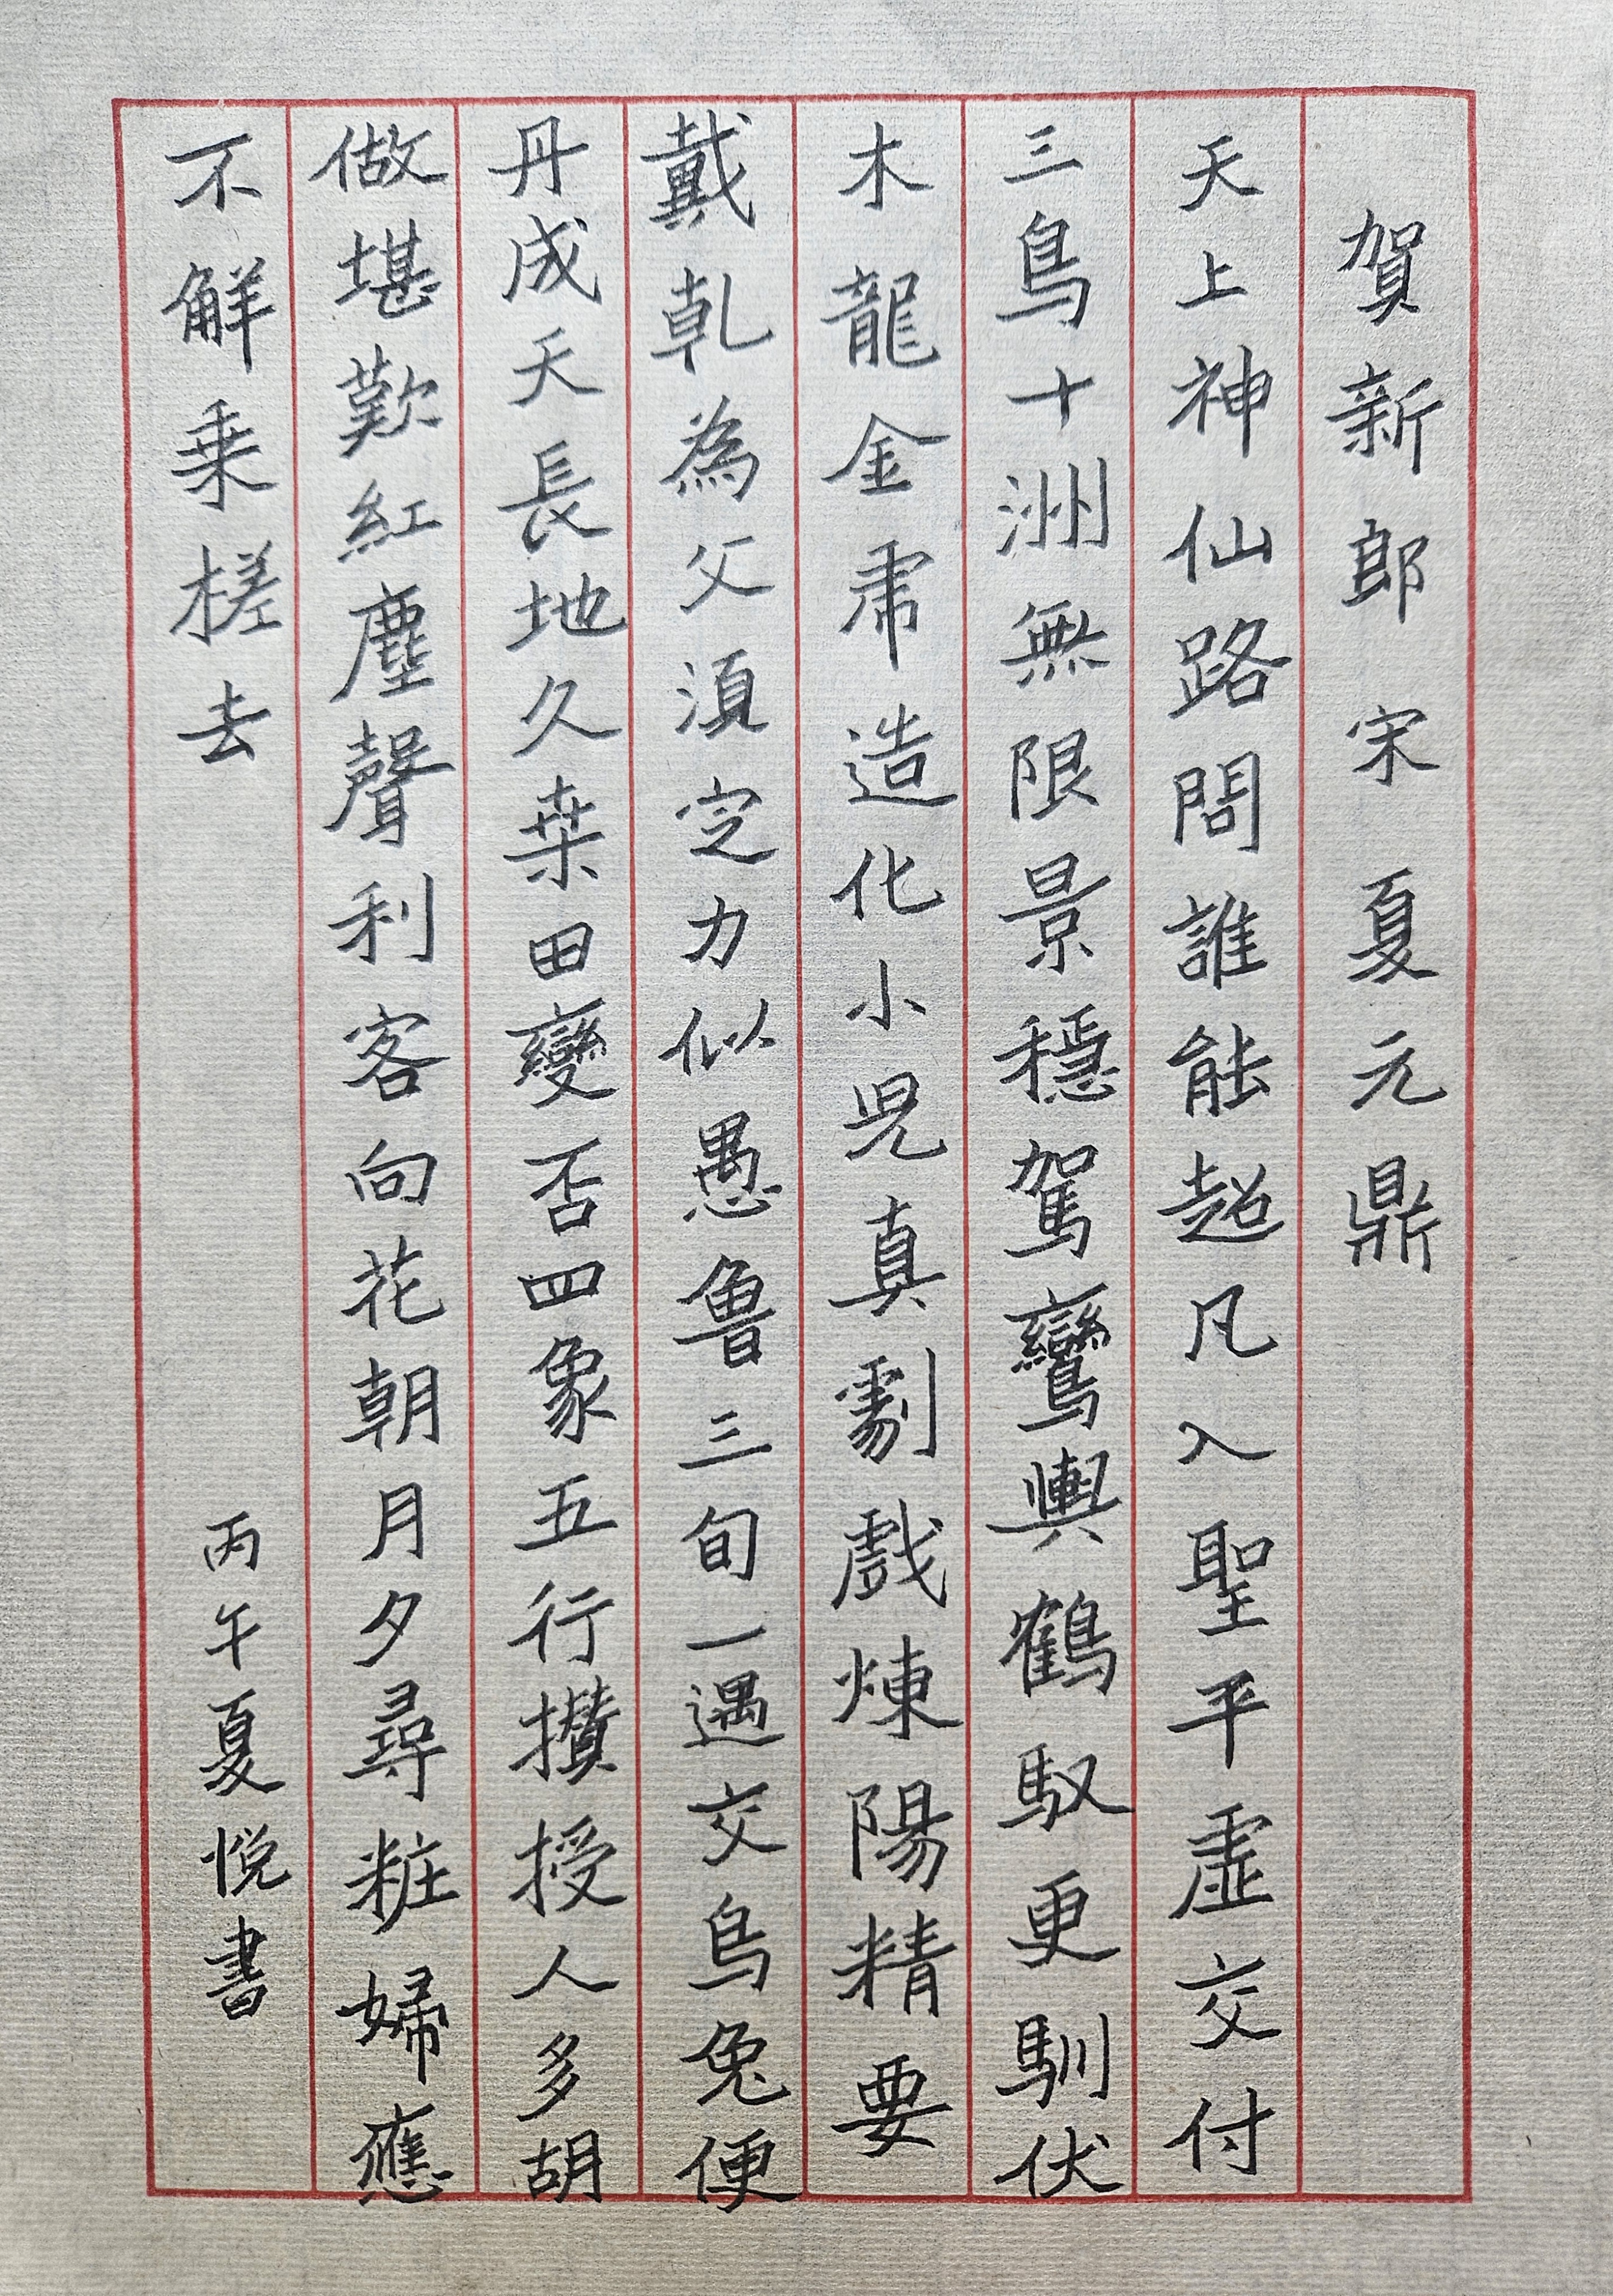 賀新郎 宋 夏元鼎
天上神仙路問誰能超凡入聖平虛交付
三鳥十洲無限景穩駕鸞輿鶴馭更馴伏
木龍金虎造化小兒真劇戲煉陽精要
戴乾為父須定力似愚魯三旬一遇交烏兔便
丹成天長地久桒田變否四象五行攢授人多胡
做堪歎紅塵聲利客向花朝月夕尋粧婦應
不解乘槎去
丙午夏悅書